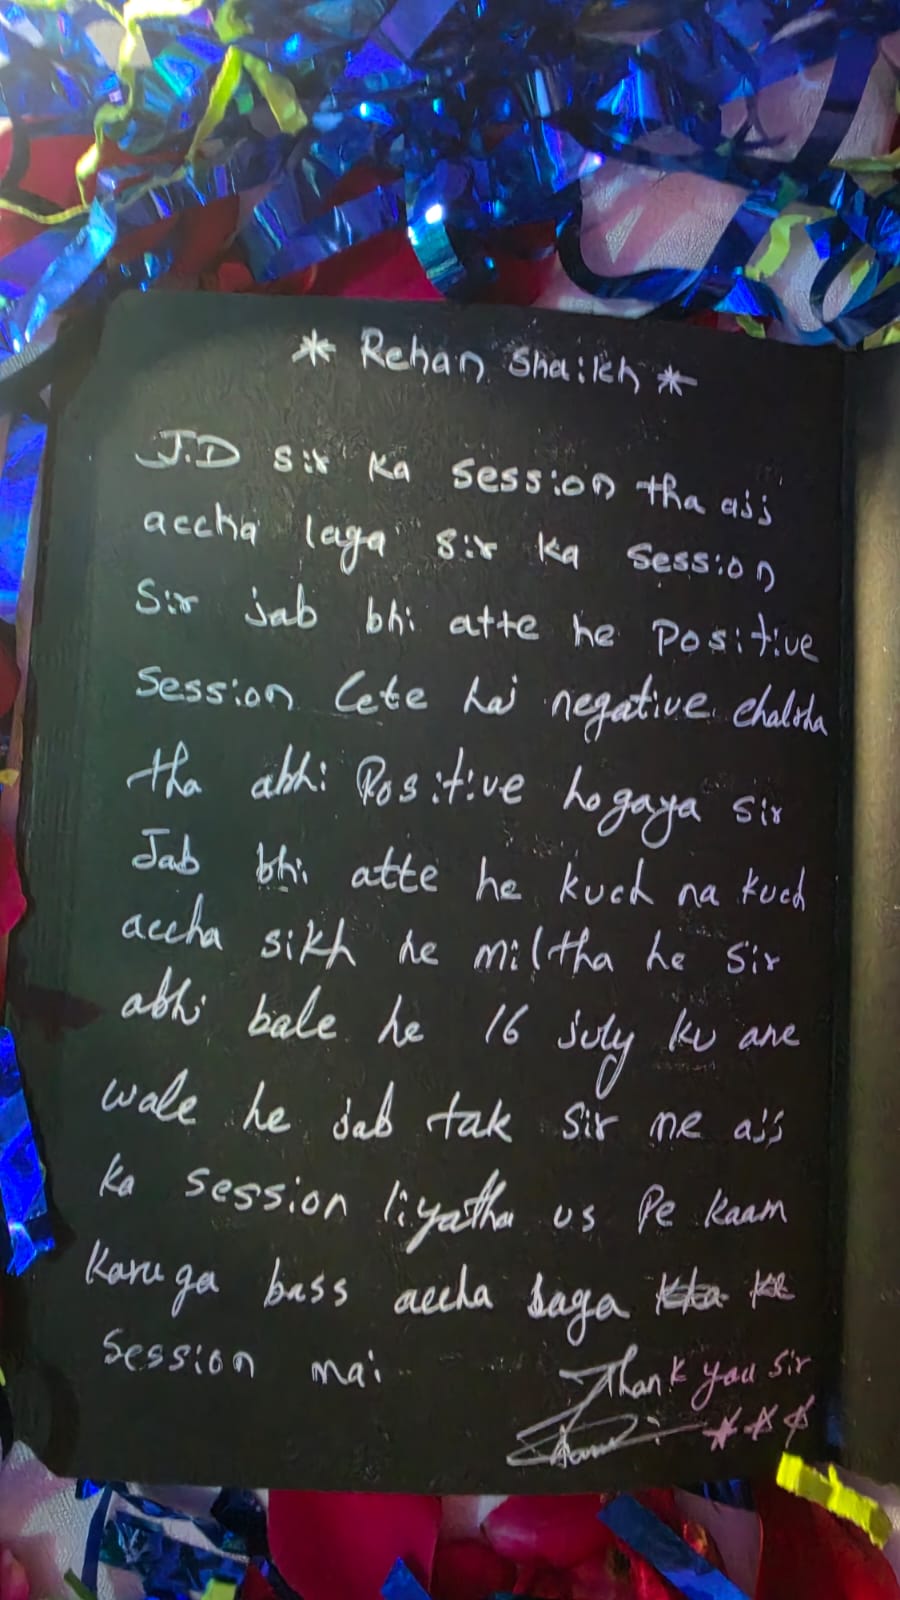 * Rehan Shaikh *
J.D sir ka session tha ajj
accha laga sir ka session
Sir jab bhi atte he Positive
Session Lete hai negative chalrha
tha abhi Positive hogaya sir
Jab bhi atte he kuch na kuch
accha sikh he miltha he sir
abhi bale he 16 july ku ane
wale he jab tak sir ne ajj
ka session liyatha us pe kaam
Karuga bass accha laga
Session mai
Thank you sir
***